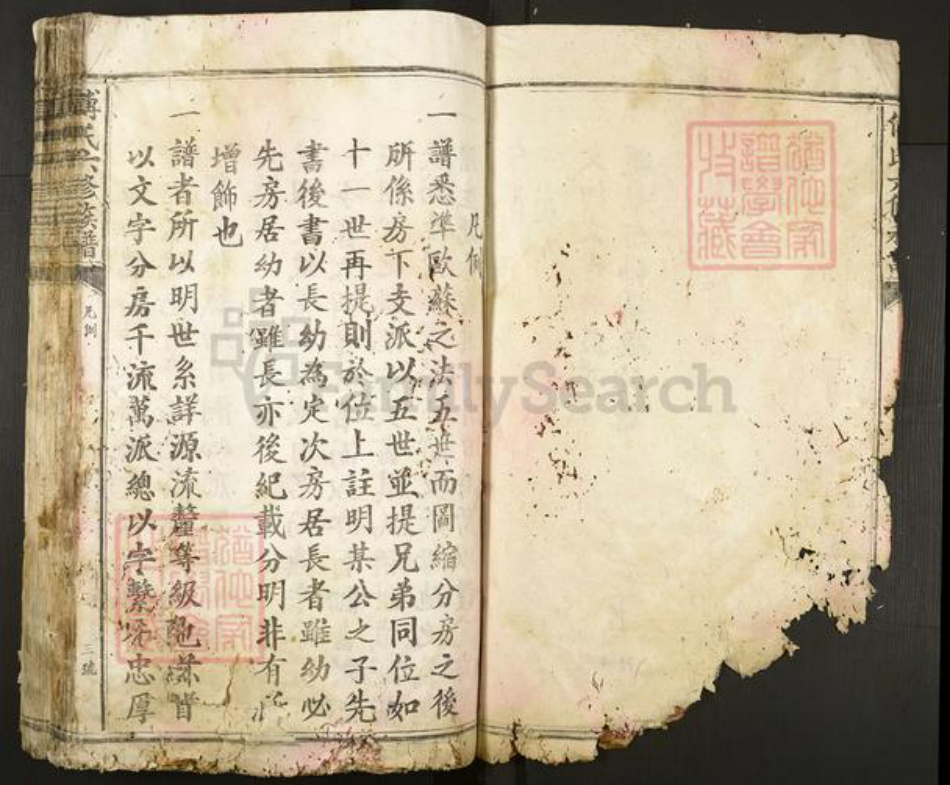 凡例
一譜悉準歐蘇之法五世而圖縮分房之後
所係房下支派以五世並提兄弟同位如
十一世再提則於位上註明某公之子先
書後書以長幼為定次房居長者雖幼必
先房居幼者雖長亦後紀載分明非有所
增飾也
一譜者所以明世系詳源流釐等級也蘇曾
以文字分房千流萬派總以字繫忠厚
傅氏六修族譜
凡例
三號
FamilySearch
譜學會
收藏